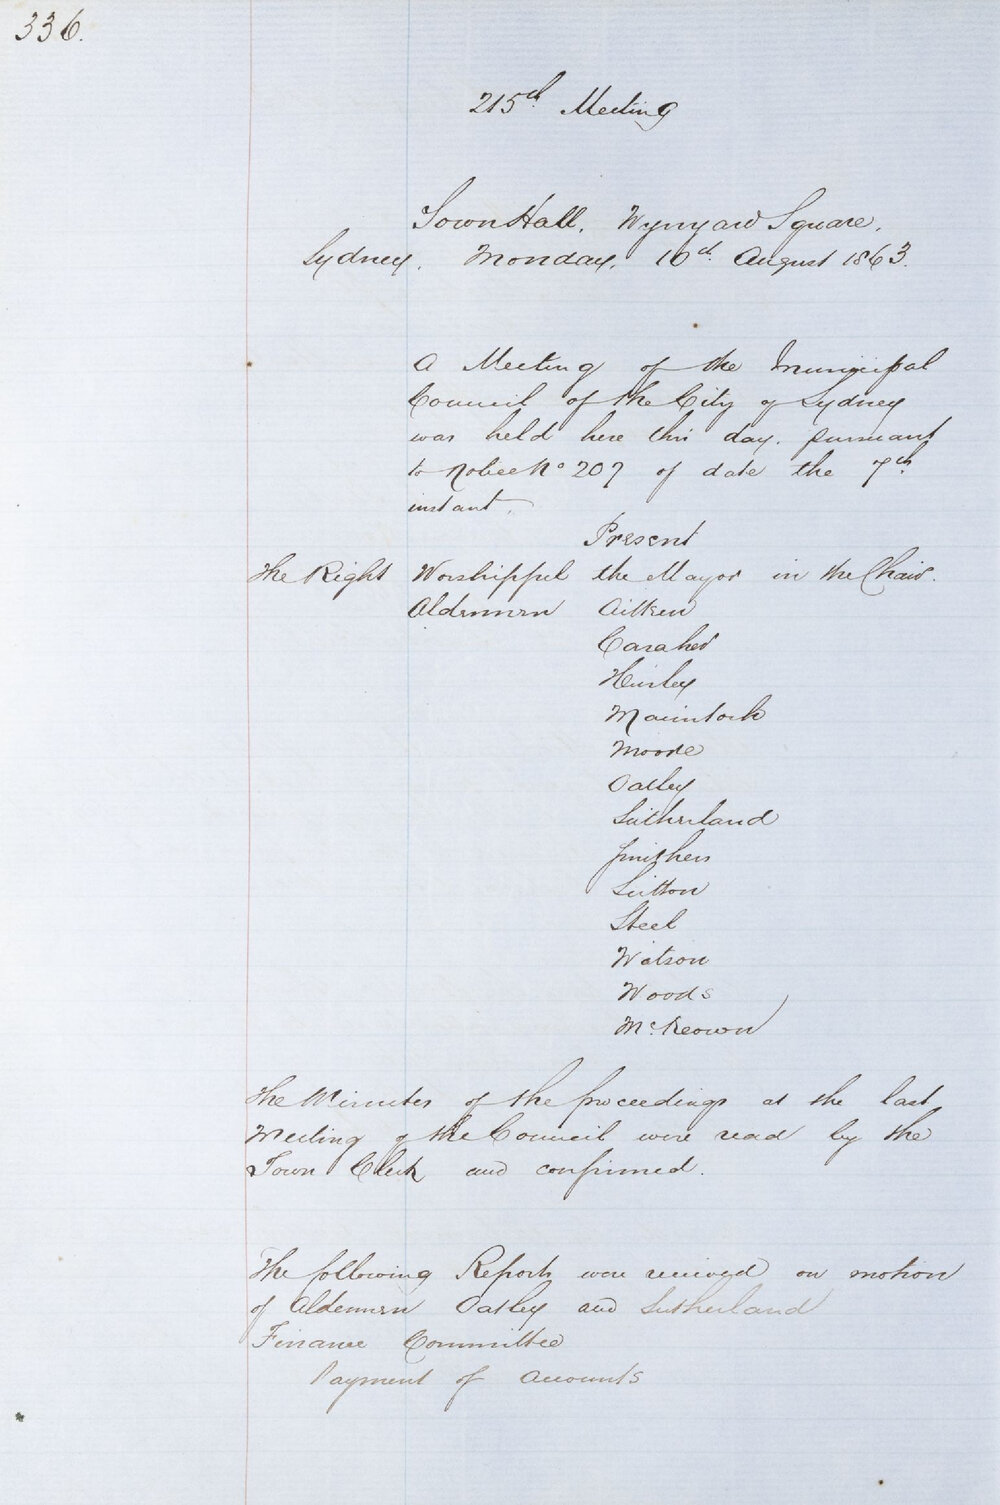 336.
215th Meeting
Town Hall, Wynyard Square,
Sydney, Monday, 10th August 1863.
A Meeting of the Municipal
Council of the City of Sydney
was held here this day, pursuant
to Notice No 207 of date the 7th
instant.
Present
The Right Worshippful the Mayor in the Chair.
Aldermen Aitken
Caraher
Hurley
Macintosh
Moore
Oatley
Sutherland
Smithers
Sutton
Steel
Watson
Woods
McKeown
The Minutes of the proceedings at the last
Meeting of the Council were read by the
Town Clerk and confirmed.
The following Reports were received on motion
of Aldermen Oatley and Sutherland
Finance Committee
Payment of Accounts